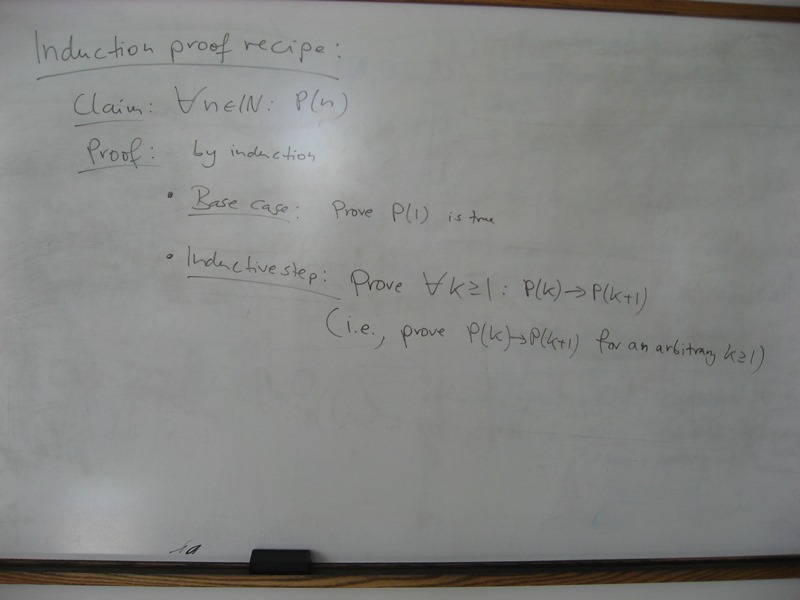 Induction proof recipe:
Claim: ∀n∈ℕ: P(n)
Proof: by induction
• Base case: Prove P(1) is true
• Inductive step: Prove ∀k≥1: P(k)→P(k+1)
(i.e., prove P(k)→P(k+1) for an arbitrary k≥1)